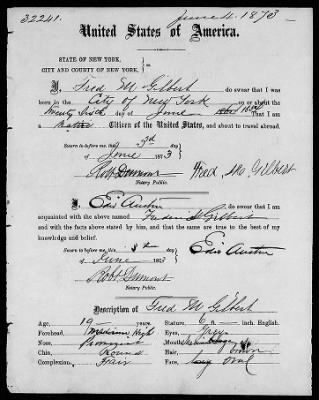 32241. June 4. 1873
United States of America.
STATE OF NEW YORK,
CITY AND COUNTY OF NEW YORK,
I, Fred M Gilbert do swear that I was
born in the City of New York on or about the
Twenty day of June
a native Citizen of the United States, and about to travel abroad.
Sworn to before me, this 3d day
of June 1873
Robt Dumont Fred M. Gilbert
Notary Public.
I, Edw Austin do swear that I am
acquainted with the above named Frederick Gilbert
and with the facts above stated by him, and that the same are true to the best of my
knowledge and belief.
Sworn to before me, this 3d day Edw Austin
of June 1873
Robt Dumont
Notary Public.
Description of Fred M Gilbert
Age, 19 years. Stature, 6 ft — inch, English.
Forehead, Medium High Eyes, Grey
Nose, Prominent Mouth,
Chin, Round Hair, Brown
Complexion, Fair Face, Long Oval